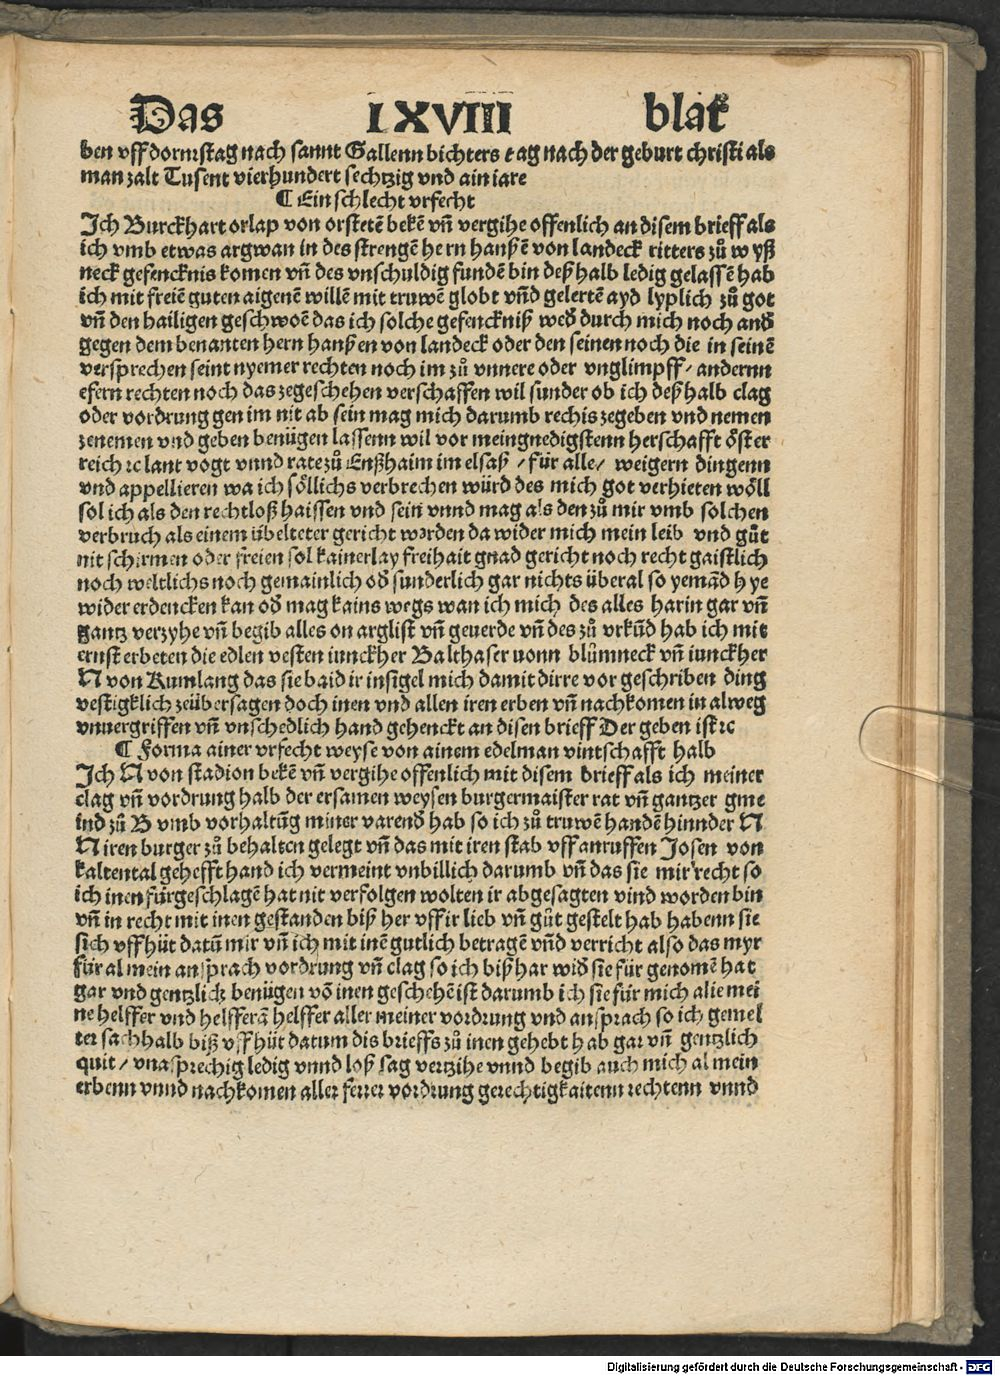 Das LXVIII blat
ben vff dornrstag nach sannt Gallenn bichters tag nach der geburt christi als
man zalt Tusent vierhundert sechtzig vnd ain iare
¶ Ein schlecht vrfecht
Jch Burckhart orlap von orstetē bekē vn̄ vergihe offenlich an disem brieff als
ich vmb etwas argwan in des strengē hern hanßē von landeck ritters zů wyß
neck gefencknis komen vn̄ des vnschuldig fundē bin deßhalb ledig gelassē hab
ich mit freiē guten aigenē willē mit truwē globt vn̄d gelertē ayd lyplich zů got
vn̄ den hailigen geschwoē das ich solche gefenckniß wed̄ durch mich noch and̄
gegen dem benanten hern hanßen von landeck oder den seinen noch die in seinē
versprechen seint nyemer rechten noch im zů vnnere oder vnglimpff / andernn
efern rechten noch das zegeschehen verschaffen wil sunder ob ich deßhalb clag
oder vordrung gen im nit ab sein mag mich darumb rechts zegeben vnd nemen
zenemen vnd geben benügen lassenn wil vor meingnedigstenn herschafft öster
reich ꝛc lant vogt vnnd rate zů Enßhaim im elsaß / für alle / weigern dingenn
vnd appellieren wa ich söllichs verbrechen würd des mich got verhieten wöll
sol ich als den rechtloß haissen vnd sein vnnd mag als den zů mir vmb solchen
verbruch als einem übelteter gericht werden da wider mich mein leib vnd gůt
nit schirmen oder freien sol kainerlay freihait gnad gericht noch recht gaistlich
noch weltlichs noch gemainlich od̄ sunderlich gar nichts überal so yemād hye
wider erdencken kan od̄ mag kains wegs wan ich mich des alles harin gar vn̄
gantz verzyhe vn̄ begib alles on arglist vn̄ geuerde vn̄ des zů vrkūd hab ich mit
ernst erbeten die edlen vesten iunckher Balthaser vonn blůmneck vn̄ iunckher
N von Rumlang das sie baid ir insigel mich damit dirre vor geschriben ding
vestigklich zeübersagen doch inen vnd allen iren erben vn̄ nachkomen in alweg
vnuergriffen vn̄ vnschedlich hand gehenckt an disen brieff Der geben ist ꝛc
¶ Forma ainer vrfecht weyse von ainem edelman vintschafft halb
Jch N von stadion bekē vn̄ vergihe offenlich mit disem brieff als ich meiner
clag vn̄ vordrung halb der ersamen weysen burgermaister rat vn̄ gantzer gme
ind zů B vmb vorhaltūg miner varend hab so ich zů truwē handē hinnder N
N iren burger zů behalten gelegt vn̄ das mit iren stab vff anruffen Josen von
kaltental gehefft hand ich vermeint vnbillich darumb vn̄ das sie mir recht so
ich inen fürgeschlagē hat nit verfolgen wolten ir abgesagten vind worden bin
vn̄ in recht mit inen gestanden biß her vff ir lieb vn̄ gůt gestelt hab habenn sie
sich vff hüt datū mir vn̄ ich mit inē gutlich betragē vn̄d verricht also das myr
für al mein ansprach vordrung vn̄ clag so ich biß har wid̄ sie für genomē hat
gar vnd gentzlich benügen vō inen geschehē ist darumb ich sie für mich alle mei
ne helffer vnd helfferā helffer aller meiner vordrung vnd ansprach so ich gemel
ter sachhalb biß vff hüt datum dis brieffs zů inen gehebt hab gar vn̄ gentzlich
quit / vnasprechig ledig vnnd loß sag vertzihe vnnd begib auch mich al mein
erbenn vnnd nachkomen aller ferrer vordrung gerechtigkaitenn rechtenn vnnd
Digitalisierung gefördert durch die Deutsche Forschungsgemeinschaft - DFG